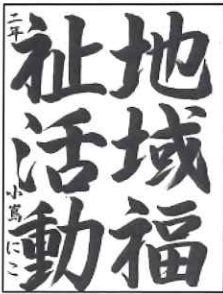 地域福
祉活動
二年 小嶌にこ